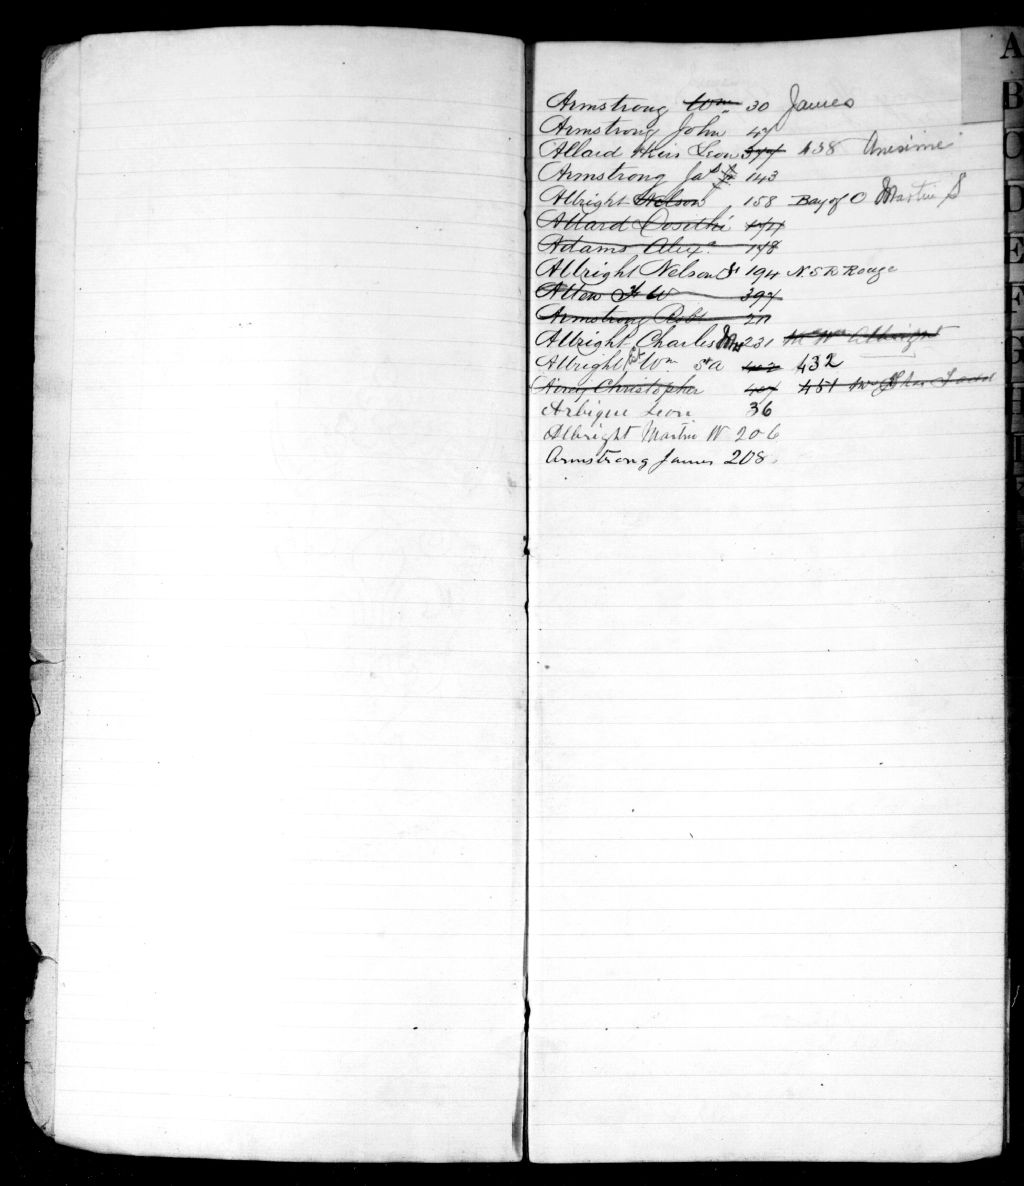 Armstrong Wm 30 James
Armstrong John 47
Allard Heirs Leon 377 438 Anesime
Armstrong Jas Jr 143
Albright Nelson 158 Bay of O Martin S
Allard Dosithi 171
Adams Alexr 178
Albright Nelson Sr 194 N S R Rouge
Allen W 397
Armstrong Robt 211
Albright Charles 231 Albright
Albright Est Wm St A 432
Christopher 407 451
Arbique Leon 36
Albright Martin W 206
Armstrong James 208
A
B
C
D
E
F
G
H